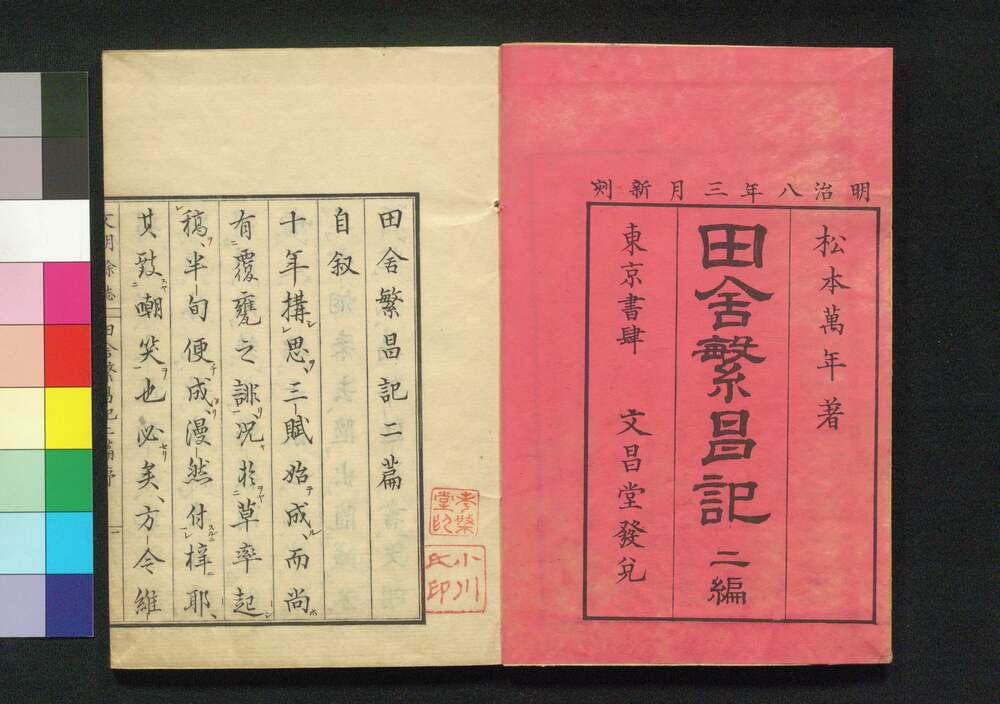 明治八年三月新刻
松本萬年著
田舍繁昌記 二編
東京書肆 文昌堂發兌
田舍繁昌記二篇
自叙
十年搆思、三賦始成、而尚
有覆甕之誹、況於草率起
稿、半旬便成、漫然付梓耶、
其致嘲笑也必矣、方今維
小川
氏印